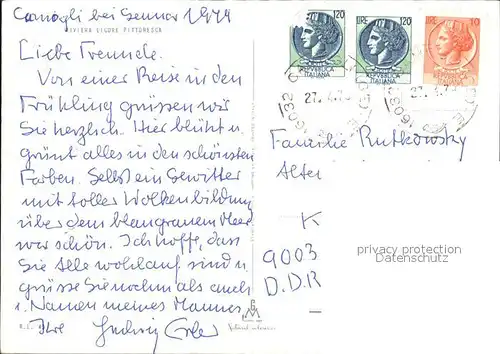 Camogli bei Genua 1979
RIVIERA LIGURE PITTORESCA
Liebe Freunde.
Von einer Reise in den
Frühling grüssen wir
Sie herzlich. Hier blüht u.
grünt alles in den schönsten
Farben. Selbst ein Gewitter
mit toller Wolkenbildung
über dem blaugrauen Meer
war schön. Ich hoffe, dass
Sie Alle wohlauf sind u.
grüsse Sie nochmals auch
i. Namen meines Mannes
Ihre
LIRE 120
REPVBBLICA
ITALIANA
LIRE 120
REPVBBLICA
ITALIANA
LIRE 10
REPVBBLICA
ITALIANA
16032
27.4.79
16032
27.4.79
Familie Rutkowsky
K
9003
D.D.R
privacy protection
Datenschutz